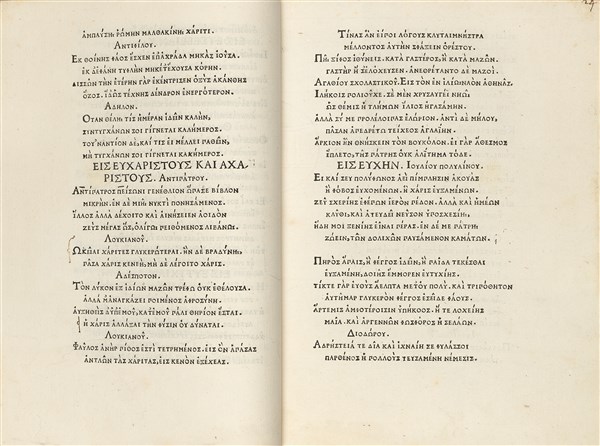 ΡΩΜΗΝ ΜΑΛΘΑΚΙΝΗ, ΧΑΡΙΤΙ.
ΑΝΤΙΦΙΛΟΥ.
ΕΚ ΘΟΙΝΗΣ ΦΑΟΣ ΕΣΧΕΝ ΕΠ ΑΧΡΑΔΑ ΜΗΚΑΣ ΙΟΥΣΑ.
ΕΚ Δ ΕΦΑΝΗ ΤΥΦΛΗΝ ΜΗΚΕΤ ΕΧΟΥΣΑ ΚΟΡΗΝ.
ΔΙΣΣΩΝ ΤΗΝ ΕΤΕΡΗΝ ΓΑΡ ΕΚΕΝΤΡΙΣΕΝ ΟΞΥΣ ΑΚΑΝΘΗΣ
ΟΖΟΣ. ΙΔΩΣ ΤΕΧΝΗΣ ΔΕΝΔΡΟΝ ΕΝΕΡΓΟΤΕΡΟΝ.
ΑΔΗΛΟΝ.
ΟΤΑΝ ΘΕΛΗΣ ΤΙΣ ΗΜΕΡΑΝ ΙΔΕΙΝ ΚΑΛΗΝ,
ΣΥΝΤΥΓΧΑΝΩΝ ΣΟΙ ΓΙΓΝΕΤΑΙ ΚΑΛΗΜΕΡΟΣ.
ΤΟΥΝΑΝΤΙΟΝ ΔΕ, ΚΑΙ ΤΙΣ ΕΙ ΜΕΛΛΕΙ ΠΑΘΕΙΝ,
ΜΗ ΤΥΓΧΑΝΩΝ ΣΟΙ ΓΙΓΝΕΤΑΙ ΚΑΚΗΜΕΡΟΣ.
ΕΙΣ ΕΥΧΑΡΙΣΤΟΥΣ ΚΑΙ ΑΧΑ
ΡΙΣΤΟΥΣ. ΑΝΤΙΠΑΤΡΟΥ.
ΑΝΤΙΠΑΤΡΟΣ ΠΕΙΣΩΝΙ ΓΕΝΕΘΛΙΟΝ ΩΠΑΣΕ ΒΙΒΛΟΝ
ΜΙΚΡΗΝ. ΕΝ ΔΕ ΜΙΗ ΝΥΚΤΙ ΠΟΝΗΣΑΜΕΝΟΣ.
ΙΛΑΟΣ ΑΛΛΑ ΔΕΧΟΙΤΟ ΚΑΙ ΑΙΝΗΣΕΙΕΝ ΑΟΙΔΟΝ
ΖΕΥΣ ΜΕΓΑΣ ΩΣ, ΟΛΙΓΩ ΠΕΙΘΟΜΕΝΟΣ ΛΙΒΑΝΩ.
ΛΟΥΚΙΑΝΟΥ.
ΩΚΕΙΑΙ ΧΑΡΙΤΕΣ ΓΛΥΚΕΡΩΤΕΡΑΙ. ΗΝ ΔΕ ΒΡΑΔΥΝΗ,
ΠΑΣΑ ΧΑΡΙΣ ΚΕΝΕΗ, ΜΗ ΔΕ ΛΕΓΟΙΤΟ ΧΑΡΙΣ.
ΑΔΕΣΠΟΤΟΝ.
ΤΟΝ ΛΥΚΟΝ ΕΞ ΙΔΙΩΝ ΜΑΖΩΝ ΤΡΕΦΩ ΟΥΚ ΕΘΕΛΟΥΣΑ.
ΑΛΛΑ Μ ΑΝΑΓΚΑΖΕΙ ΠΟΙΜΕΝΟΣ ΑΦΡΟΣΥΝΗ.
ΑΥΞΗΘΕΙΣ Δ ΥΠ ΕΜΟΥ, ΚΑΤ ΕΜΟΥ ΠΑΛΙ ΘΗΡΙΟΝ ΕΣΤΑΙ.
Η ΧΑΡΙΣ ΑΛΛΑΞΑΙ ΤΗΝ ΦΥΣΙΝ ΟΥ ΔΥΝΑΤΑΙ.
ΛΟΥΚΙΑΝΟΥ.
ΦΑΥΛΟΣ ΑΝΗΡ ΠΙΘΟΣ ΕΣΤΙ ΤΕΤΡΗΜΕΝΟΣ. ΕΙΣ ΟΝ ΑΠΑΣΑΣ
ΑΝΤΛΩΝ ΤΑΣ ΧΑΡΙΤΑΣ, ΕΙΣ ΚΕΝΟΝ ΕΞΕΧΕΑΣ.
ΤΙΝΑΣ ΑΝ ΕΙΠΟΙ ΛΟΓΟΥΣ ΚΛΥΤΑΙΜΝΗΣΤΡΑ
ΜΕΛΛΟΝΤΟΣ ΑΥΤΗΝ ΣΦΑΞΕΙΝ ΟΡΕΣΤΟΥ.
ΠΗ ΞΙΦΟΣ ΙΘΥΝΕΙΣ. ΚΑΤΑ ΓΑΣΤΕΡΟΣ, Η ΚΑΤΑ ΜΑΖΩΝ.
ΓΑΣΤΗΡ Η Σ ΕΛΟΧΕΥΣΕΝ. ΑΝΕΘΡΕΨΑΝΤΟ ΔΕ ΜΑΖΟΙ.
ΑΓΑΘΙΟΥ ΣΧΟΛΑΣΤΙΚΟΥ. ΕΙΣ ΤΟ ΕΝ ΙΛΙΩ ΝΑΟΝ ΑΘΗΝΑΣ.
ΙΛΗΚΟΙΣ ΠΟΛΙΟΥΧΕ. ΣΕ ΜΕΝ ΧΡΥΣΑΥΓΕΙ ΝΗΩ
ΩΣ ΘΕΜΙΣ Η ΤΛΗΜΩΝ ΙΛΙΟΣ ΗΓΑΣΑΜΗΝ.
ΑΛΛΑ ΣΥ ΜΕ ΠΡΟΛΕΛΟΙΠΑΣ ΕΛΩΡΙΟΝ. ΑΝΤΙ ΔΕ ΜΗΛΟΥ,
ΠΑΣΑΝ ΑΠΕΔΡΕΨΩ ΤΕΙΧΕΟΣ ΑΓΛΑΙΗΝ.
ΑΡΚΙΟΝ ΗΝ ΘΝΗΣΚΕΙΝ ΤΟΝ ΒΟΥΚΟΛΟΝ. ΕΙ ΓΑΡ ΑΘΕΣΜΟΣ
ΕΠΛΕΤΟ, ΤΗΣ ΠΑΤΡΗΣ ΟΥΚ ΑΛΙΤΗΜΑ ΤΟΔΕ.
ΕΙΣ ΕΥΧΗΝ. ΙΟΥΛΙΟΥ ΠΟΛΥΑΙΝΟΥ.
ΕΙ ΚΑΙ ΣΕΥ ΠΟΛΥΦΩΝΟΣ ΑΕΙ ΠΙΜΠΛΗΣΙΝ ΑΚΟΥΑΣ
Η ΦΟΒΟΣ ΕΥΧΟΜΕΝΩΝ, Η ΧΑΡΙΣ ΕΥΞΑΜΕΝΩΝ.
ΖΕΥ ΣΧΕΡΙΗΣ ΕΦΕΠΩΝ ΙΕΡΟΝ ΠΕΔΟΝ. ΑΛΛΑ ΚΑΙ ΗΜΕΩΝ
ΚΛΥΘΙ, ΚΑΙ ΑΨΕΥΔΕΙ ΝΕΥΣΟΝ ΥΠΟΣΧΕΣΙΗ,
ΗΔΗ ΜΟΙ ΞΕΝΙΗΣ ΕΙΝΑΙ ΠΕΡΑΣ. ΕΝ ΔΕ ΜΕ ΠΑΤΡΗ
ΖΩΕΙΝ, ΤΩΝ ΔΟΛΙΧΩΝ ΠΑΥΣΑΜΕΝΟΝ ΚΑΜΑΤΩΝ.
ΠΗΡΟΣ ΑΠΑΙΣ, Η ΦΕΓΓΟΣ ΙΔΕΙΝ, Η ΠΑΙΔΑ ΤΕΚΕΣΘΑΙ
ΕΥΞΑΜΕΝΗ, ΔΟΙΗΣ ΕΜΜΟΡΕΝ ΕΥΤΥΧΙΗΣ.
ΤΙΚΤΕ ΓΑΡ ΕΥΘΥΣ ΑΕΛΠΤΑ ΜΕΤ ΟΥ ΠΟΛΥ. ΚΑΙ ΤΡΙΠΟΘΗΤΟΝ
ΑΥΤΗΜΑΡ ΓΛΥΚΕΡΟΝ ΦΕΓΓΟΣ ΕΣΕΙΔΕ ΦΑΟΥΣ.
ΑΡΤΕΜΙΣ ΑΜΦΟΤΕΡΟΙΣΙΝ ΥΠΗΚΟΟΣ. Η ΤΕ ΛΟΧΕΙΗΣ
ΜΑΙΑ. ΚΑΙ ΑΡΓΕΝΝΩΝ ΦΩΣΦΟΡΟΣ Η ΣΕΛΑΩΝ.
ΔΙΟΔΩΡΟΥ.
ΑΔΡΗΣΤΕΙΑ ΤΕ ΔΙΑ ΚΑΙ ΙΧΝΑΙΗ ΣΕ ΦΥΛΑΣΣΟΙ
ΠΑΡΘΕΝΟΣ Η ΠΟΛΛΟΥΣ ΨΕΥΣΑΜΕΝΗ ΝΕΜΕΣΙΣ.